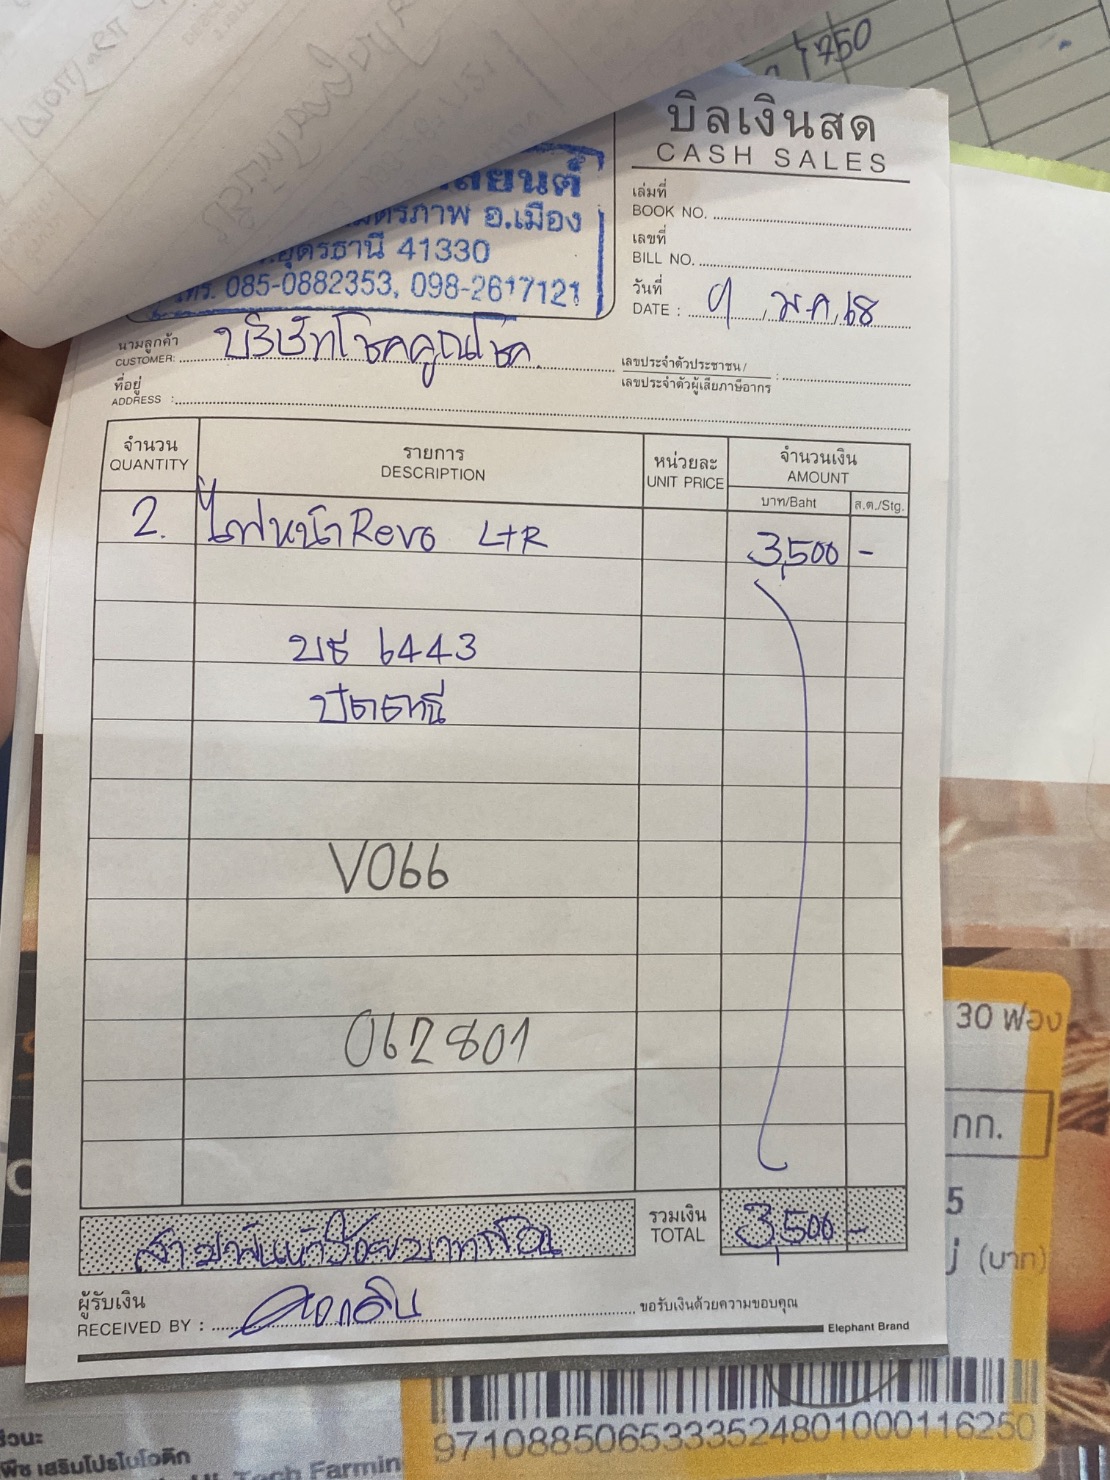 1750
บิลเงินสด
CASH SALES
อ.เมือง
41330
โทร. 085-0882353, 098-2617121
เล่มที่
BOOK NO.
เลขที่
BILL NO.
วันที่
DATE : 9 ม.ค. 68
นามลูกค้า
CUSTOMER: บริษัทโชคคูณโชค
เลขประจำตัวประชาชน /
เลขประจำตัวผู้เสียภาษีอากร :
ที่อยู่
ADDRESS :
จำนวน รายการ หน่วยละ จำนวนเงิน
QUANTITY DESCRIPTION UNIT PRICE AMOUNT
บาท/Baht ส.ต./Stg.
2. ไฟหน้า Revo L+R 3,500 -
6443
ปัตตานี
V066
062801
สามพันห้าร้อยบาทถ้วน รวมเงิน 3,500 -
TOTAL
ผู้รับเงิน
RECEIVED BY : ขอรับเงินด้วยความขอบคุณ
Elephant Brand
30 ฟอง
กก.
5
(บาท)
9710885065333524801000116250
เสริมโปรไบโอติก
Tech Farmin